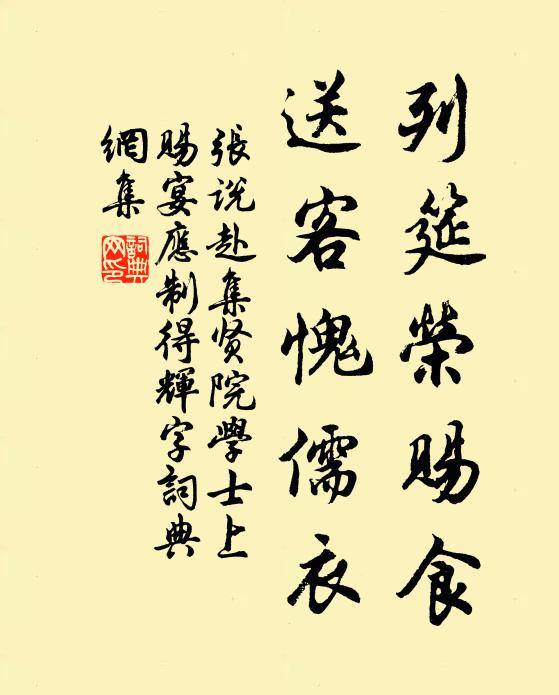 列筵榮賜食
送客愧儒衣
張说赴集贤院學士上
賜宴應制得輝字詞典
網集
詞典網印